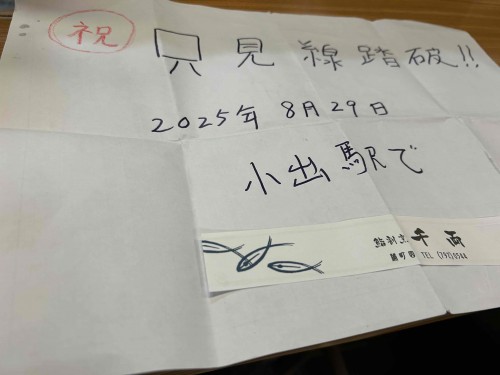 祝 只見線踏破!!
2025年 8月29日
小出駅で
鮨割立 千両
TEL (792)6544